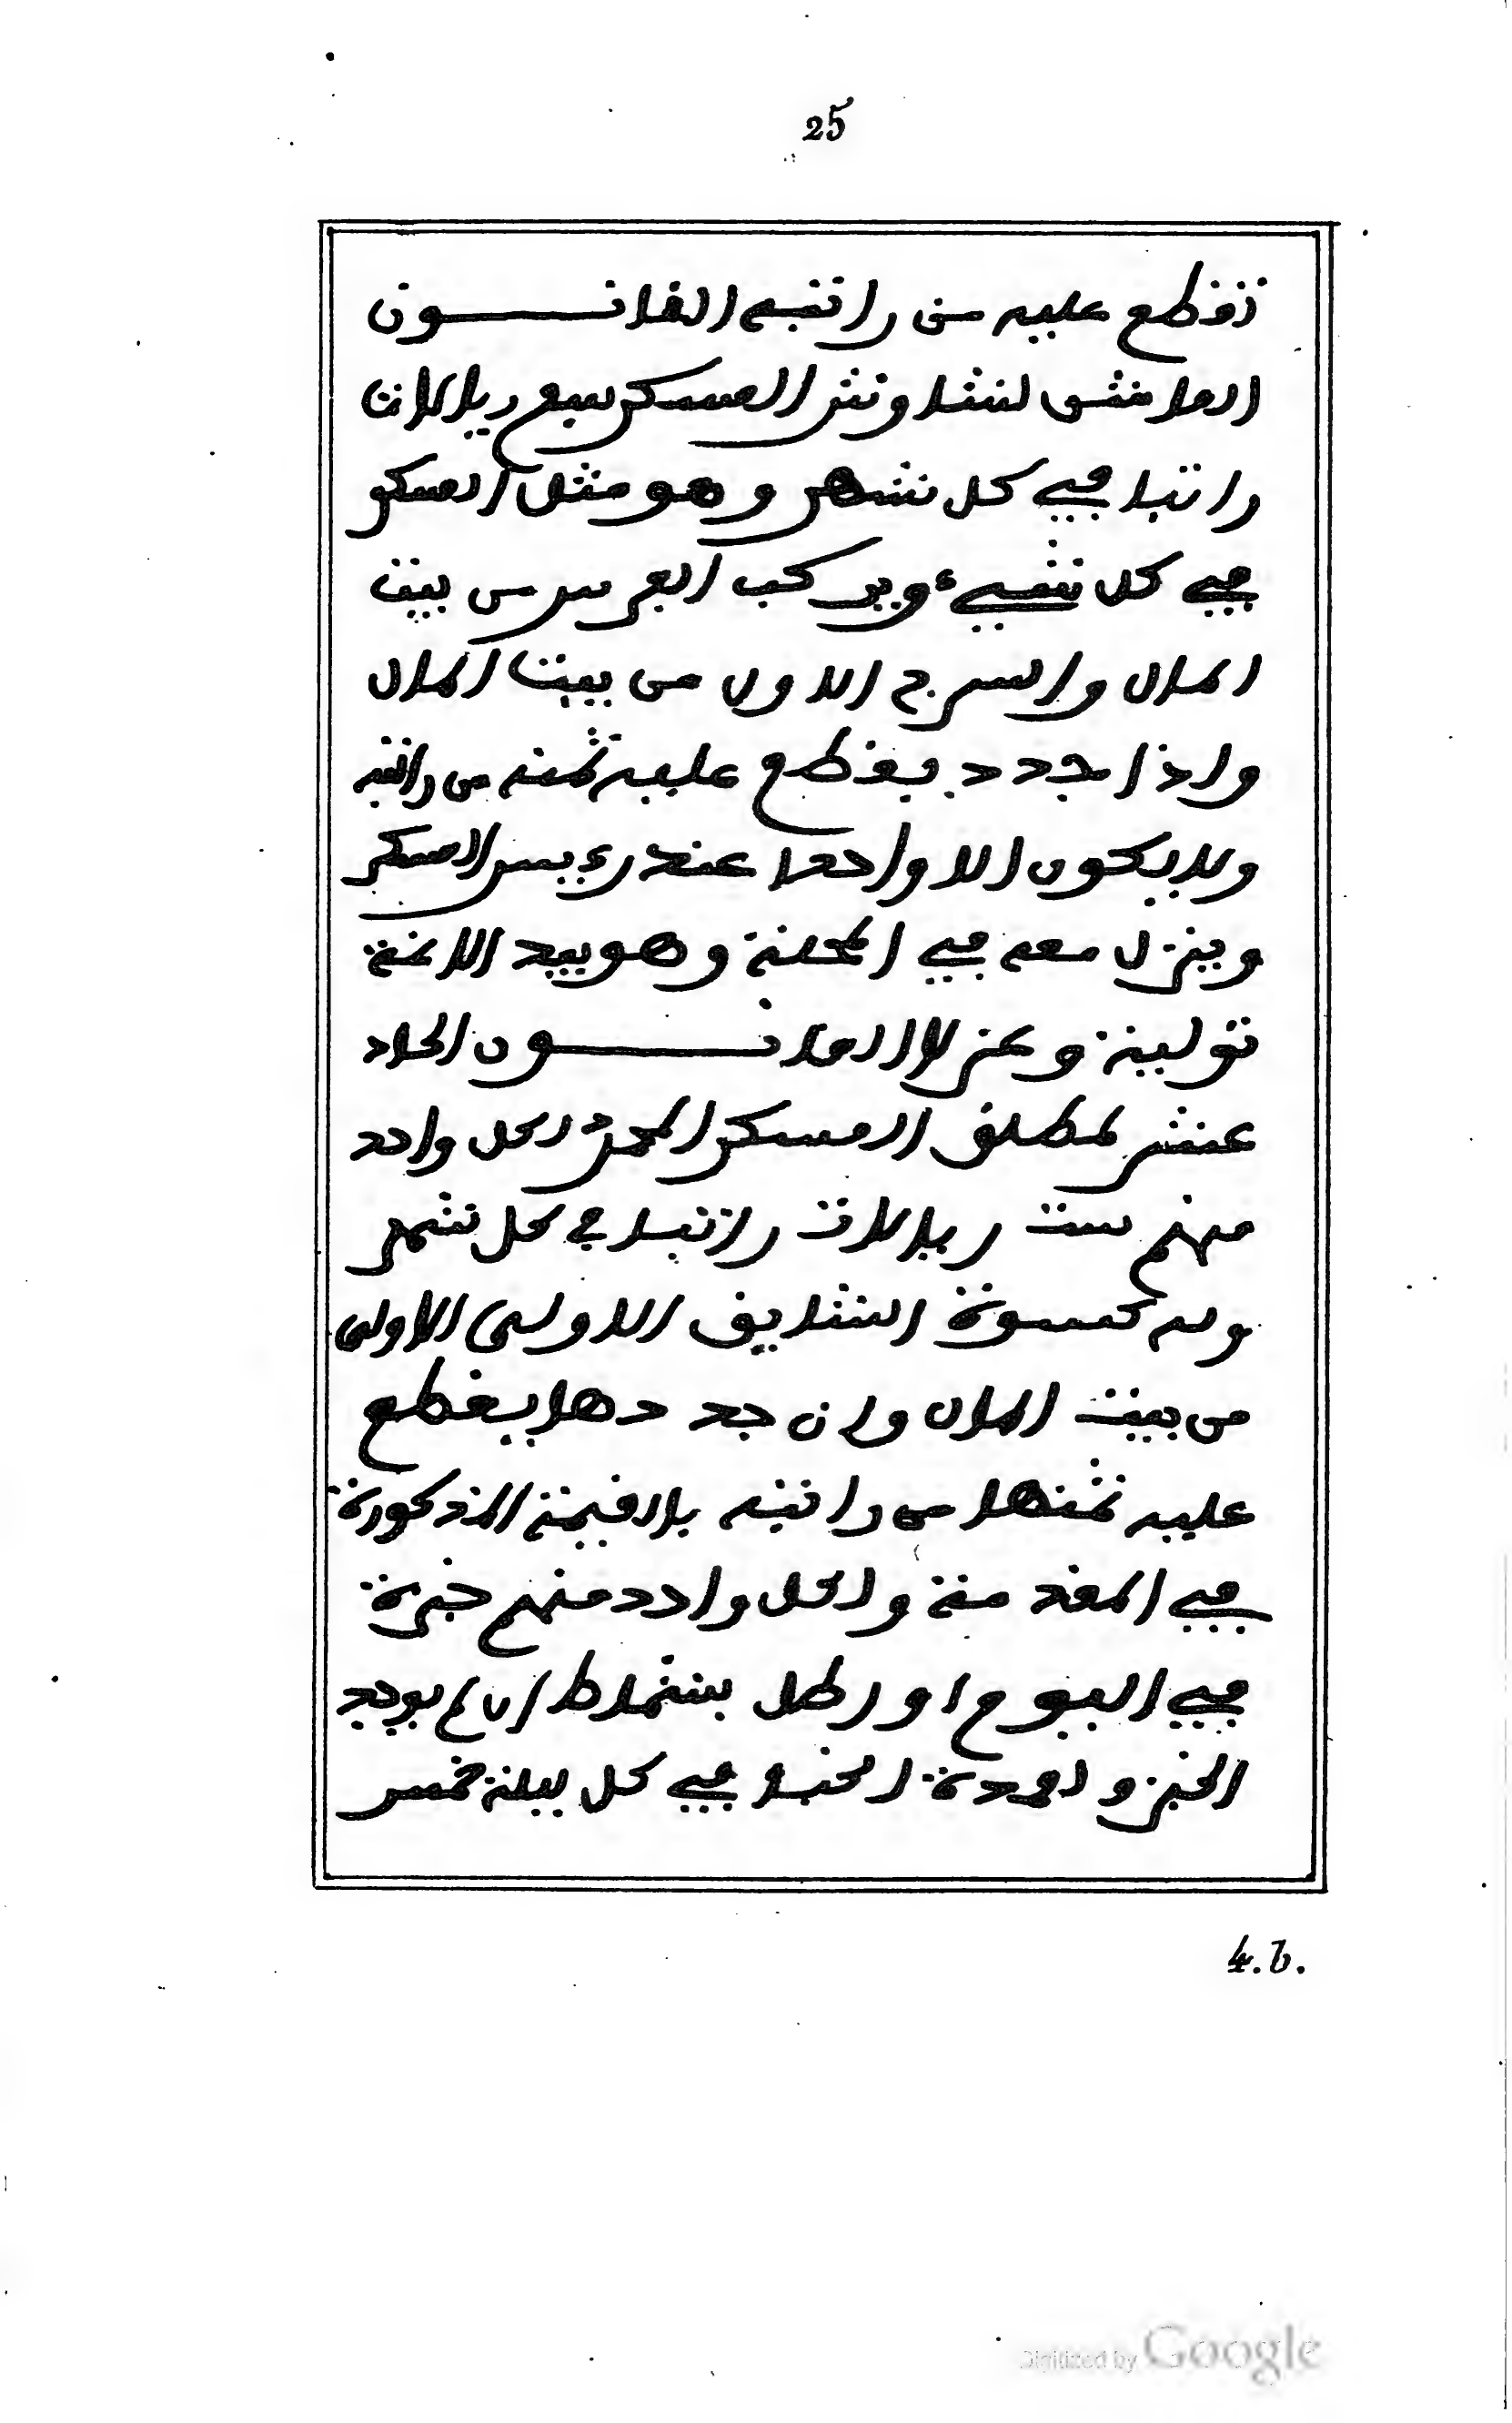 25
تقطع عليه من راتبه القانـــون
العاشر لشاوش العسكر سبع ريالات
راتبا في كل شهر وهو مثل العسكر
في كل شيء ويركب العرس من بيت
المال والسرج الاول من بيت المال
واذا جدد يقطع عليه ثمنه من راتبه
ولا يكون الا واحدا عند رءيس العسكر
وينزل معه في المحلة وهو بيد الاغة
تولية وعزلا القانـــون الحاد
عشر لمطلق العسكر المحمدي لكل واحد
منهم ست ريالات راتبا في كل شهر
وله كسوة الشايق الاولى الاولى
من بيت المال وان جددها يقطع
عليه ثمنها من راتبه بالقيمة المذكورة
في المقدمة ولكل واحد منهم خبزة
في اليوم او رطل بشماط ان لم يوجد
الخبز ولعدة الخبا في كل ليلة خمس
4.b.
Digitized by Google